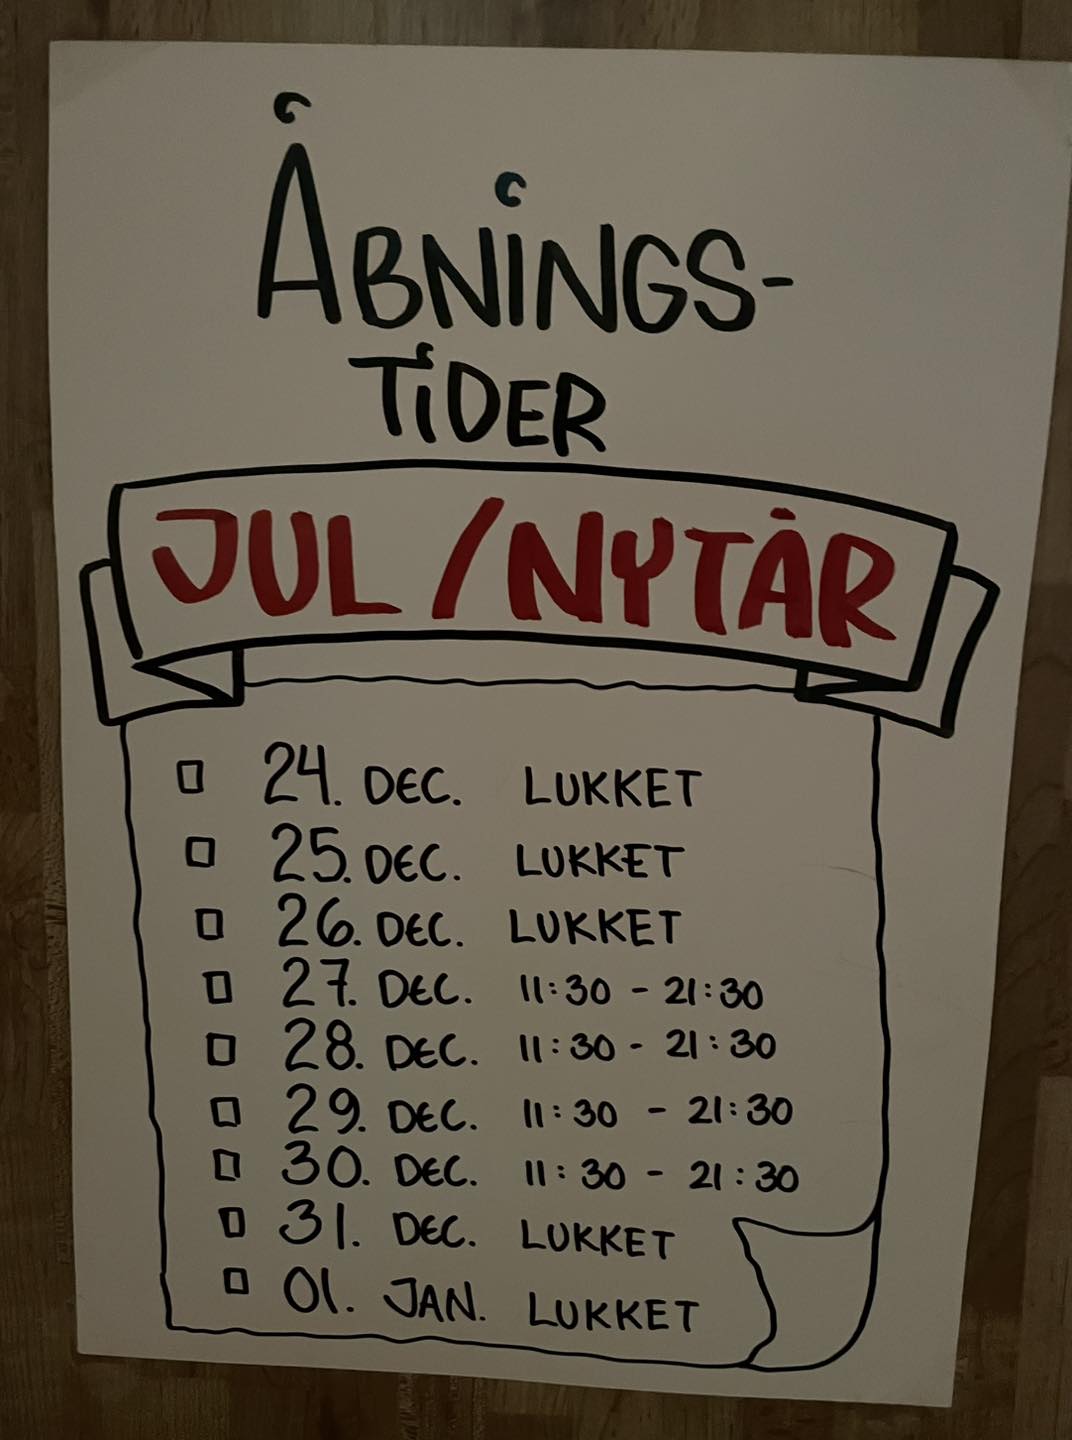 ÅBNINGS-
TIDER
JUL/NYTÅR
24. DEC. LUKKET
25. DEC. LUKKET
26. DEC. LUKKET
27. DEC. 11:30 - 21:30
28. DEC. 11:30 - 21:30
29. DEC. 11:30 - 21:30
30. DEC. 11:30 - 21:30
31. DEC. LUKKET
01. JAN. LUKKET